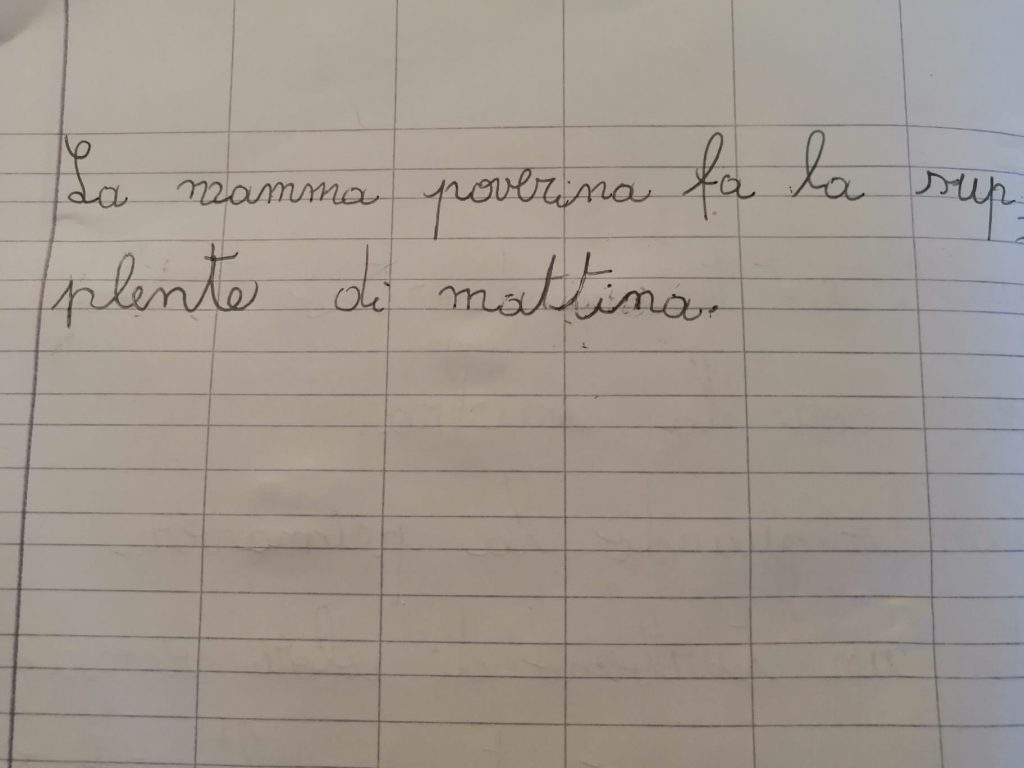 La mamma poverina fa la sup-
plente di mattina.